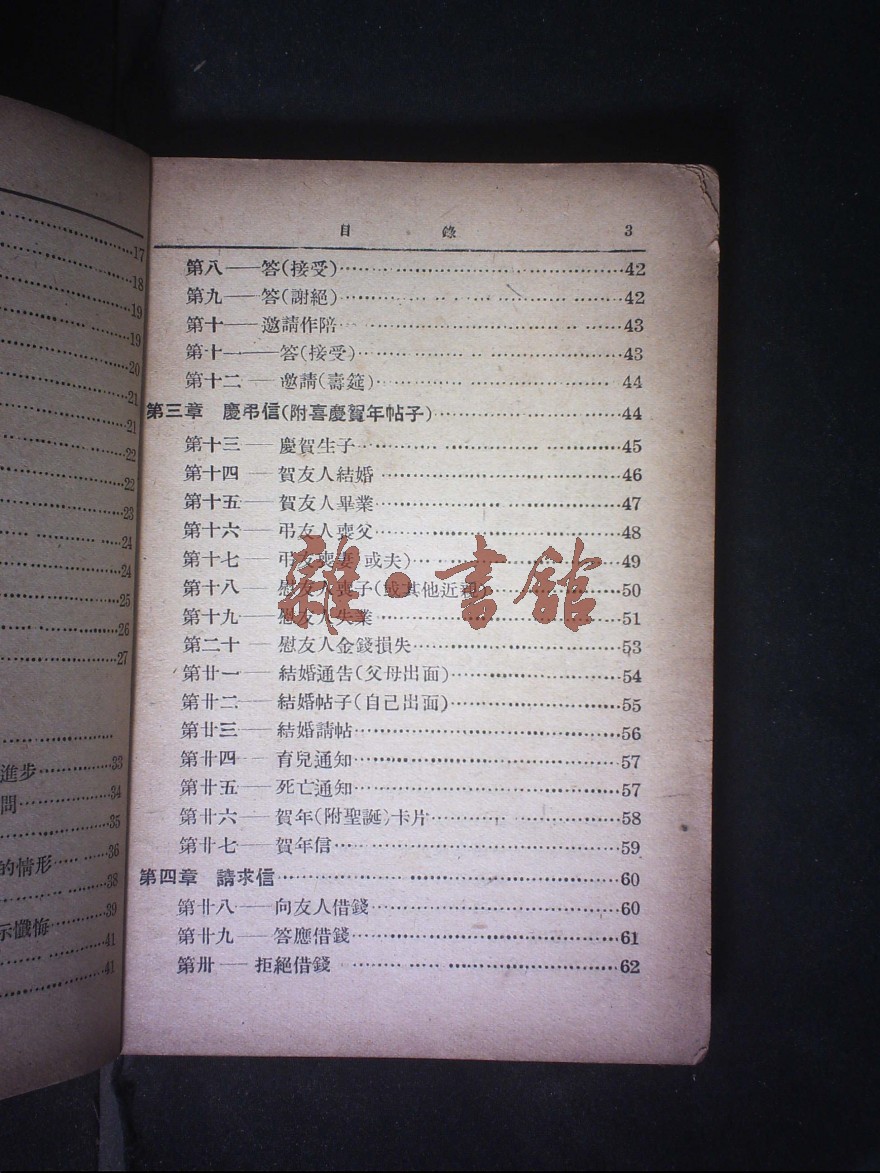 17
18
19
19
20
21
21
22
22
23
24
24
25
26
27
進步………33
問………34
………35
的情形………36
………38
示懺悔………39
………41
………41
目錄 3
第八——答(接受)………42
第九——答(謝絕)………42
第十——邀請作陪………43
第十一——答(接受)………43
第十二——邀請(壽筵)………44
第三章 慶弔信(附喜慶賀年帖子)………44
第十三——慶賀生子………45
第十四——賀友人結婚………46
第十五——賀友人畢業………47
第十六——弔友人喪父………48
第十七——弔友喪妻(或夫)………49
第十八——慰友人喪子(或其他近親)………50
第十九——慰友人失業………51
第二十——慰友人金錢損失………53
第廿一——結婚通告(父母出面)………54
第廿二——結婚帖子(自己出面)………55
第廿三——結婚請帖………56
第廿四——育兒通知………57
第廿五——死亡通知………57
第廿六——賀年(附聖誕)卡片………58
第廿七——賀年信………59
第四章 請求信………60
第廿八——向友人借錢………60
第廿九——答應借錢………61
第卅——拒絕借錢………62
雜·書館